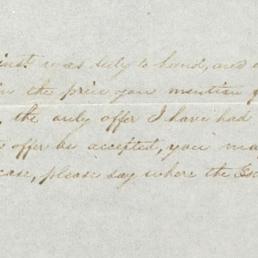 inst was duly to hand, and
in the price you mention
, the only offer I have had
offer be accepted, you may
case, please say where the